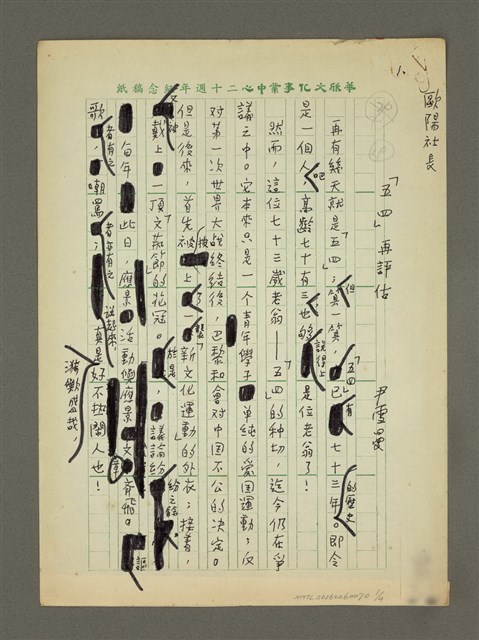 華欣文化事業中心二十週年紀念稿紙
1.
歐陽社長
「五四」再評估
尹雪曼
再有幾天就是「五四」;算一算,「五四」已有七十三年的歷史。即令
是一個人吧,高齡七十有三,也夠談得上是位老翁了!
然而,這位七十三歲老翁——「五四」的種切,迄今仍在爭
議之中。它本來只是一個青年學子單純的愛國運動;反
對第一次世界大戰終結後,巴黎和會對中国不公的決定。
但是後來,首先被披上了一襲「新文化運動」的外衣;接着,
又被戴上一頂「文藝節」的花冠。於是,議論紛紛之餘,
每年此日,應景活動與應景文章齊飛。謳
歌者有之,嘲罵者亦有之;說起來,真是好不热鬧人也!
猗歟盛哉,
NMTL20162060070 1/4